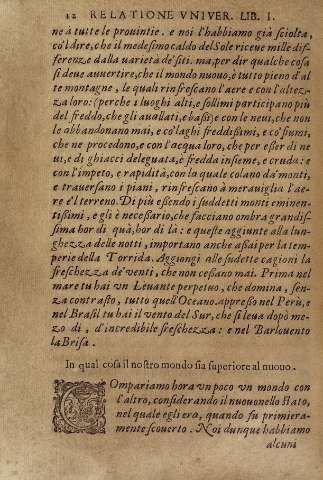 12 RELATIONE VNIVER. LIB. I.
ne à tutte le prouintie. e noi l'habbiamo già sciolta,
cõ'l dire, che il medesimo caldo del Sole riceue mille dif
ferenze dalla varietà de' siti. ma, per dir qualche cosa
si deue auuertire, che il mondo nuouo, è tutto pieno d'al
te montagne, le quali rinfrescano l'aere e con l'altez-
za loro: (perche i luoghi alti, e sollimi participano più
del freddo, che gli auallati, e bassi) e con le neui, che non
le abbandonano mai, e co' laghi freddissimi, e co' fiumi,
che ne procedono, e con l'acqua loro, che per esser di ne
ui, e di ghiacci deleguata, è fredda insieme, e cruda: e
con l'impeto, e rapidità, con la quale colano da' monti,
e trauersano i piani, rinfrescano à merauiglia l'ae-
re e'l terreno. Di più essendo i suddetti monti eminen-
tissimi, e gli è necessario, che facciano ombra grandis-
sima hor di quà, hor di là: e queste aggiunte alla lun-
ghezza delle notti, importano anche assai per la tem-
perie della Torrida. Aggiungi alle sudette cagioni la
freschezza de' venti, che non cessano mai. Prima nel
mare tu hai vn Leuante perpetuo, che domina, sen-
za contrasto, tutto quell'Oceano. appresso nel Perù, e
nel Brasil tu hai il vento del Sur, che si leua dopò me-
zo dì, d'incredibile freschezza: e nel Barlouento
la Brisa.
In qual cosa il nostro mondo sia superiore al nuouo.
COmpariamo hora vn poco vn mondo con
l'altro, considerando il nuouo nello stato,
nel quale egli ero, quando fu primiera-
mente scouerto. Noi dunque habbiamo
alcuni